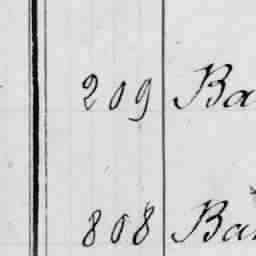 209 Ba
808 Ba